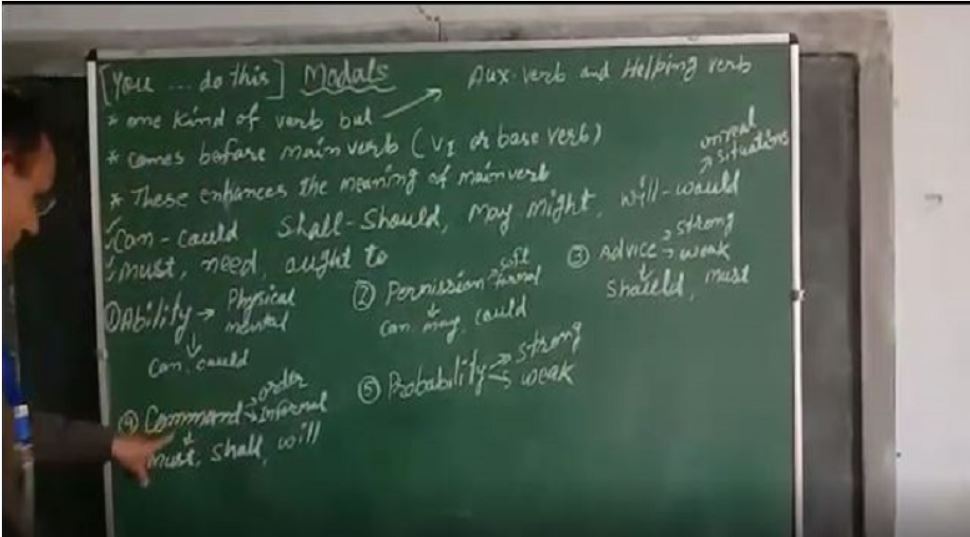 [You ... do this] Modals
Aux. verb and Helping verb
* one kind of verb but →
* comes before main verb (V1 or base verb)
* These enhances the meaning of main verb
unreal
situations
Can-could Shall-Should, May Might, will-would
must, need, aught to
① Ability → Physical
mental
can, could
② Permission → soft
formal
can may, could
③ Advice → strong
→ weak
should, must
④ Command → order
→ informal
must, shall, will
⑤ Probability → strong
→ weak